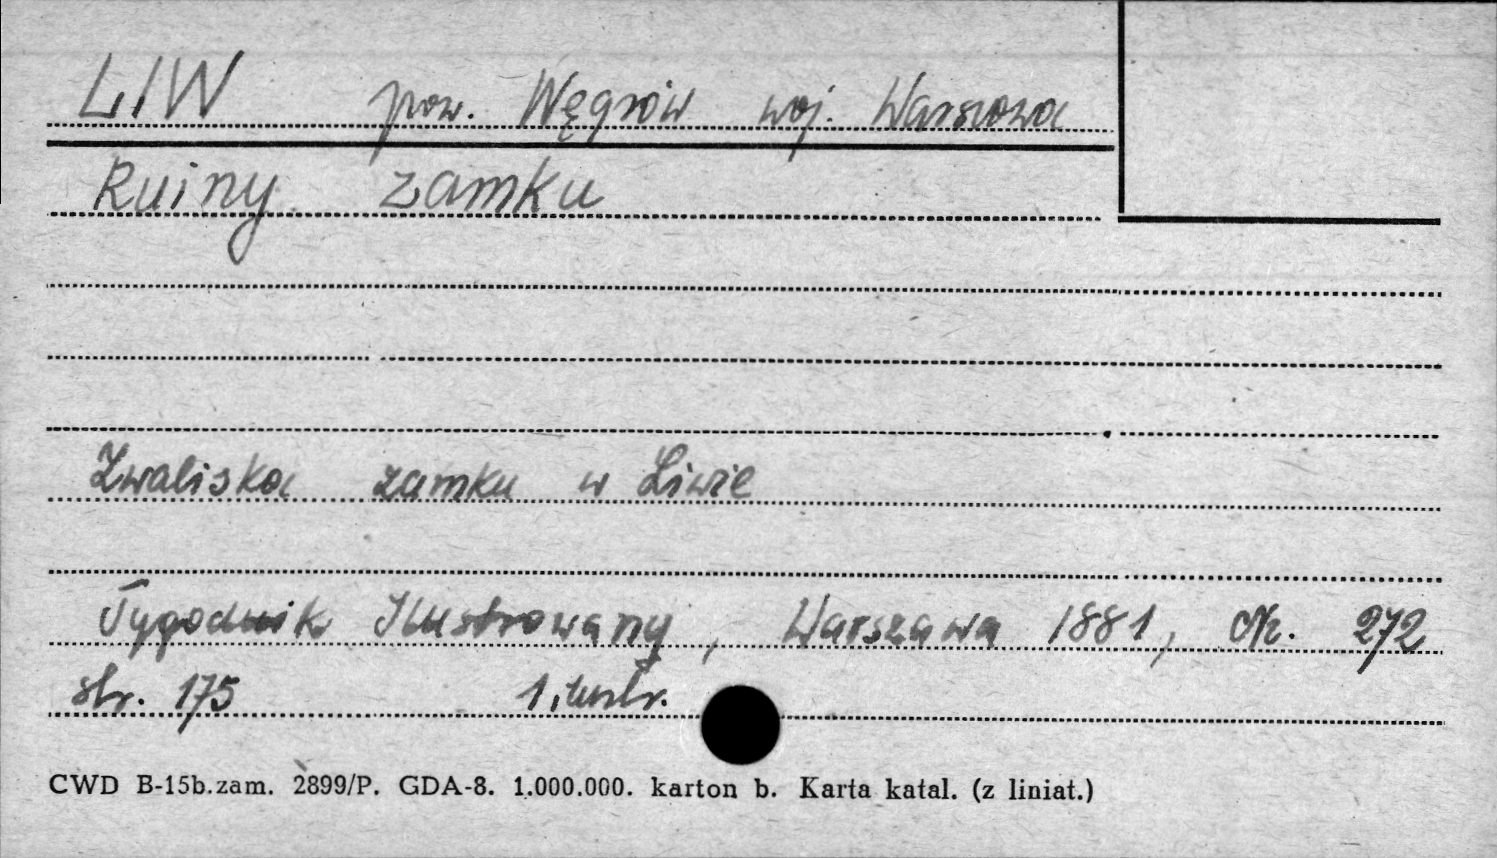 LIW pow. Węgrów woj. Warszawa
Ruiny zamku
Zwaliska zamku w Liwie
Tygodnik Ilustrowany, Warszawa 1881, Nr. 272
str. 175 1 ilustr.
CWD B-15b.zam. 2899/P. GDA-8. 1.000.000. karton b. Karta katal. (z liniat.)